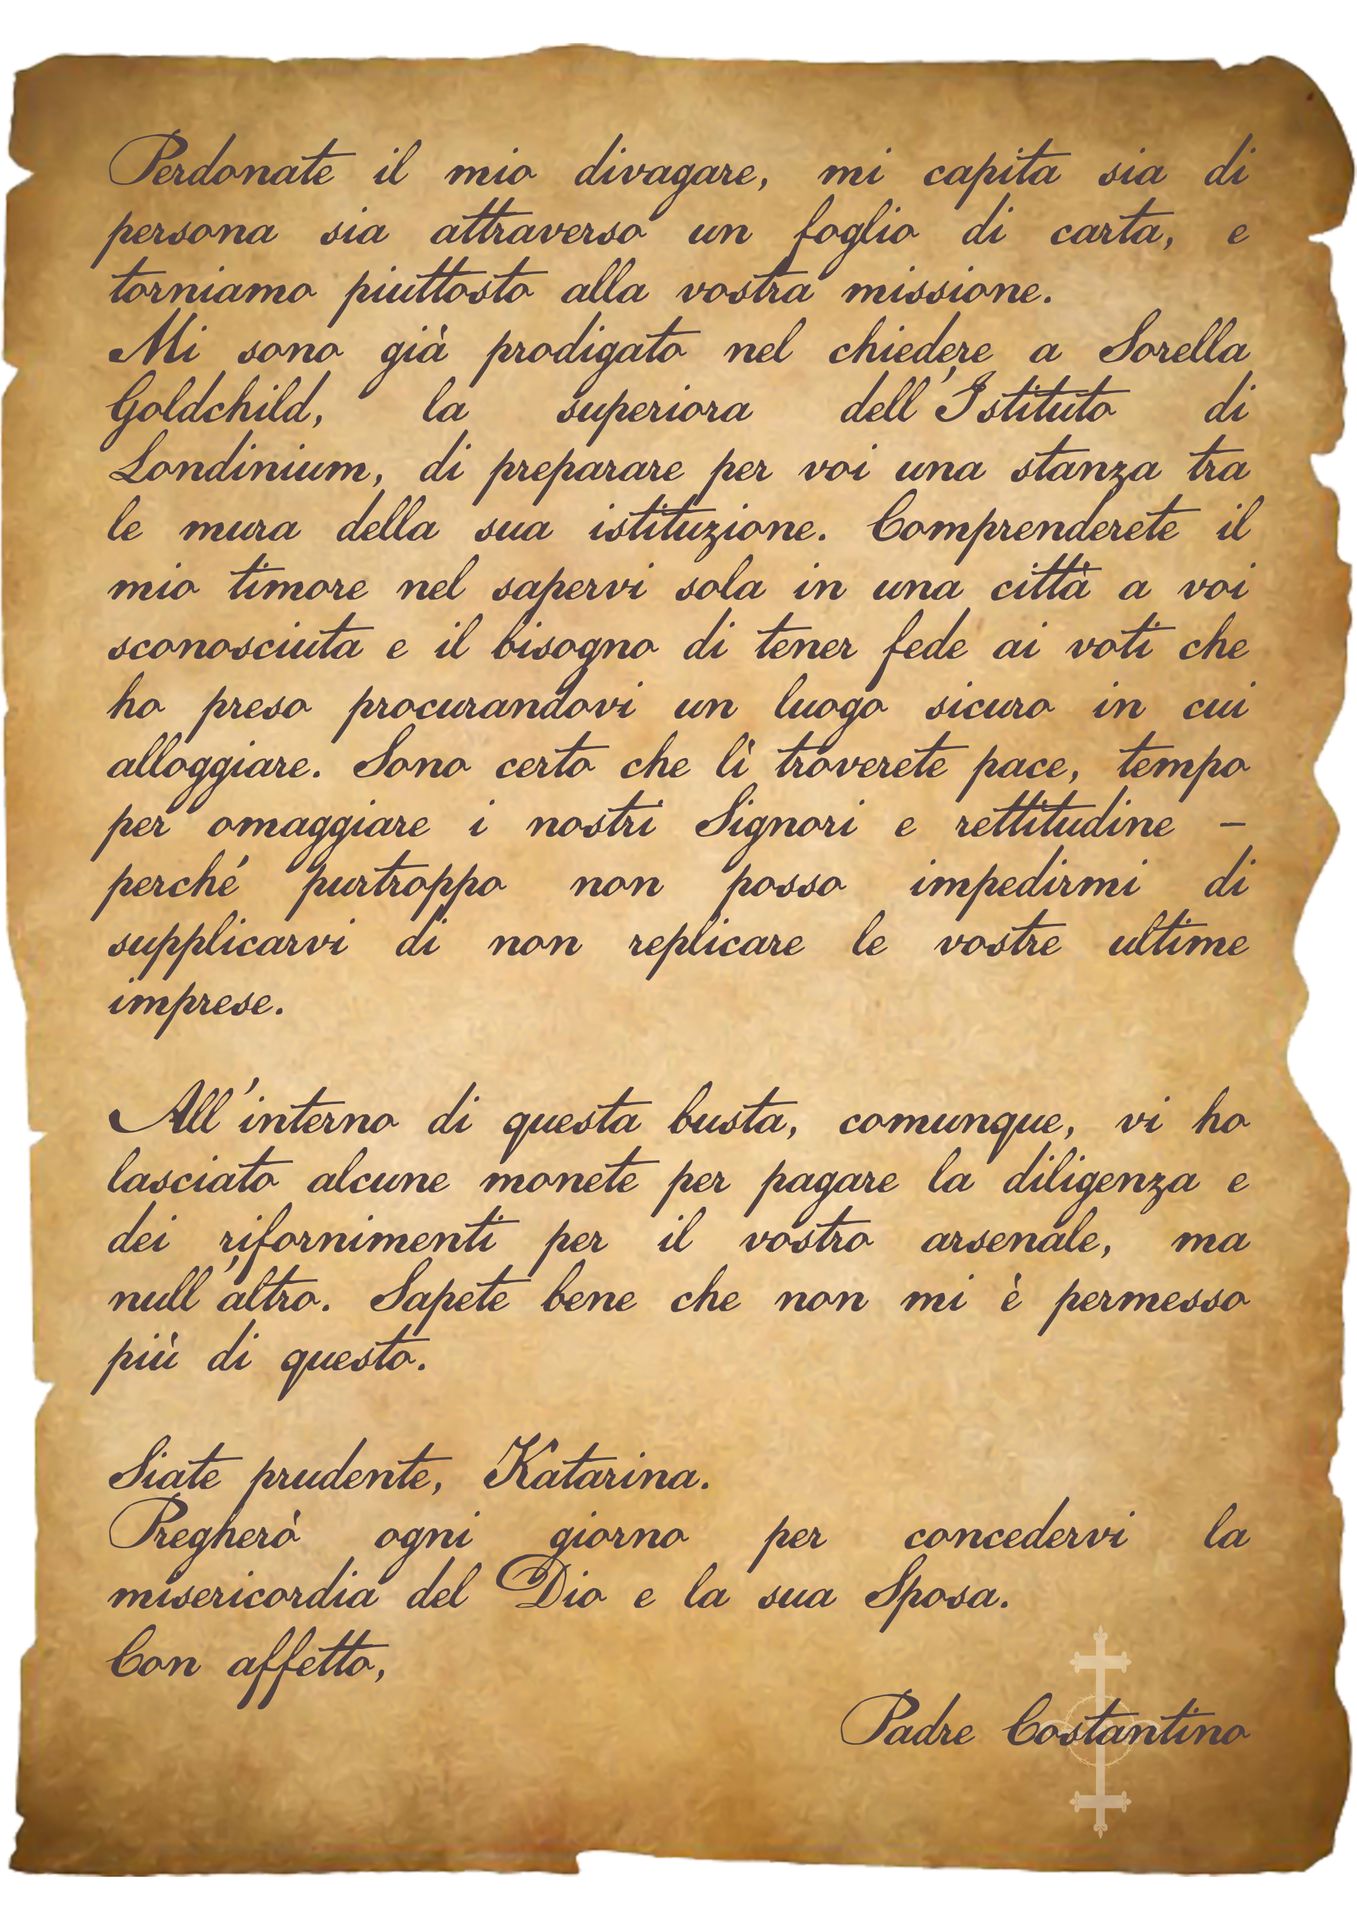 Perdonate il mio divagare, mi capita sia di
persona sia attraverso un foglio di carta, e
torniamo piuttosto alla vostra missione.
Mi sono già prodigato nel chiedere a Sorella
Goldchild, la superiora dell'Istituto di
Londinium, di preparare per voi una stanza tra
le mura della sua istituzione. Comprenderete il
mio timore nel sapervi sola in una città a voi
sconosciuta e il bisogno di tener fede ai voti che
ho preso procurandovi un luogo sicuro in cui
alloggiare. Sono certo che lì troverete pace, tempo
per omaggiare i nostri Signori e rettitudine –
perché purtroppo non posso impedirmi di
supplicarvi di non replicare le vostre ultime
imprese.
All'interno di questa busta, comunque, vi ho
lasciato alcune monete per pagare la diligenza e
dei rifornimenti per il vostro arsenale, ma
null'altro. Sapete bene che non mi è permesso
più di questo.
Siate prudente, Katarina.
Pregherò ogni giorno per concedervi la
misericordia del Dio e la sua Sposa.
Con affetto,
Padre Costantino